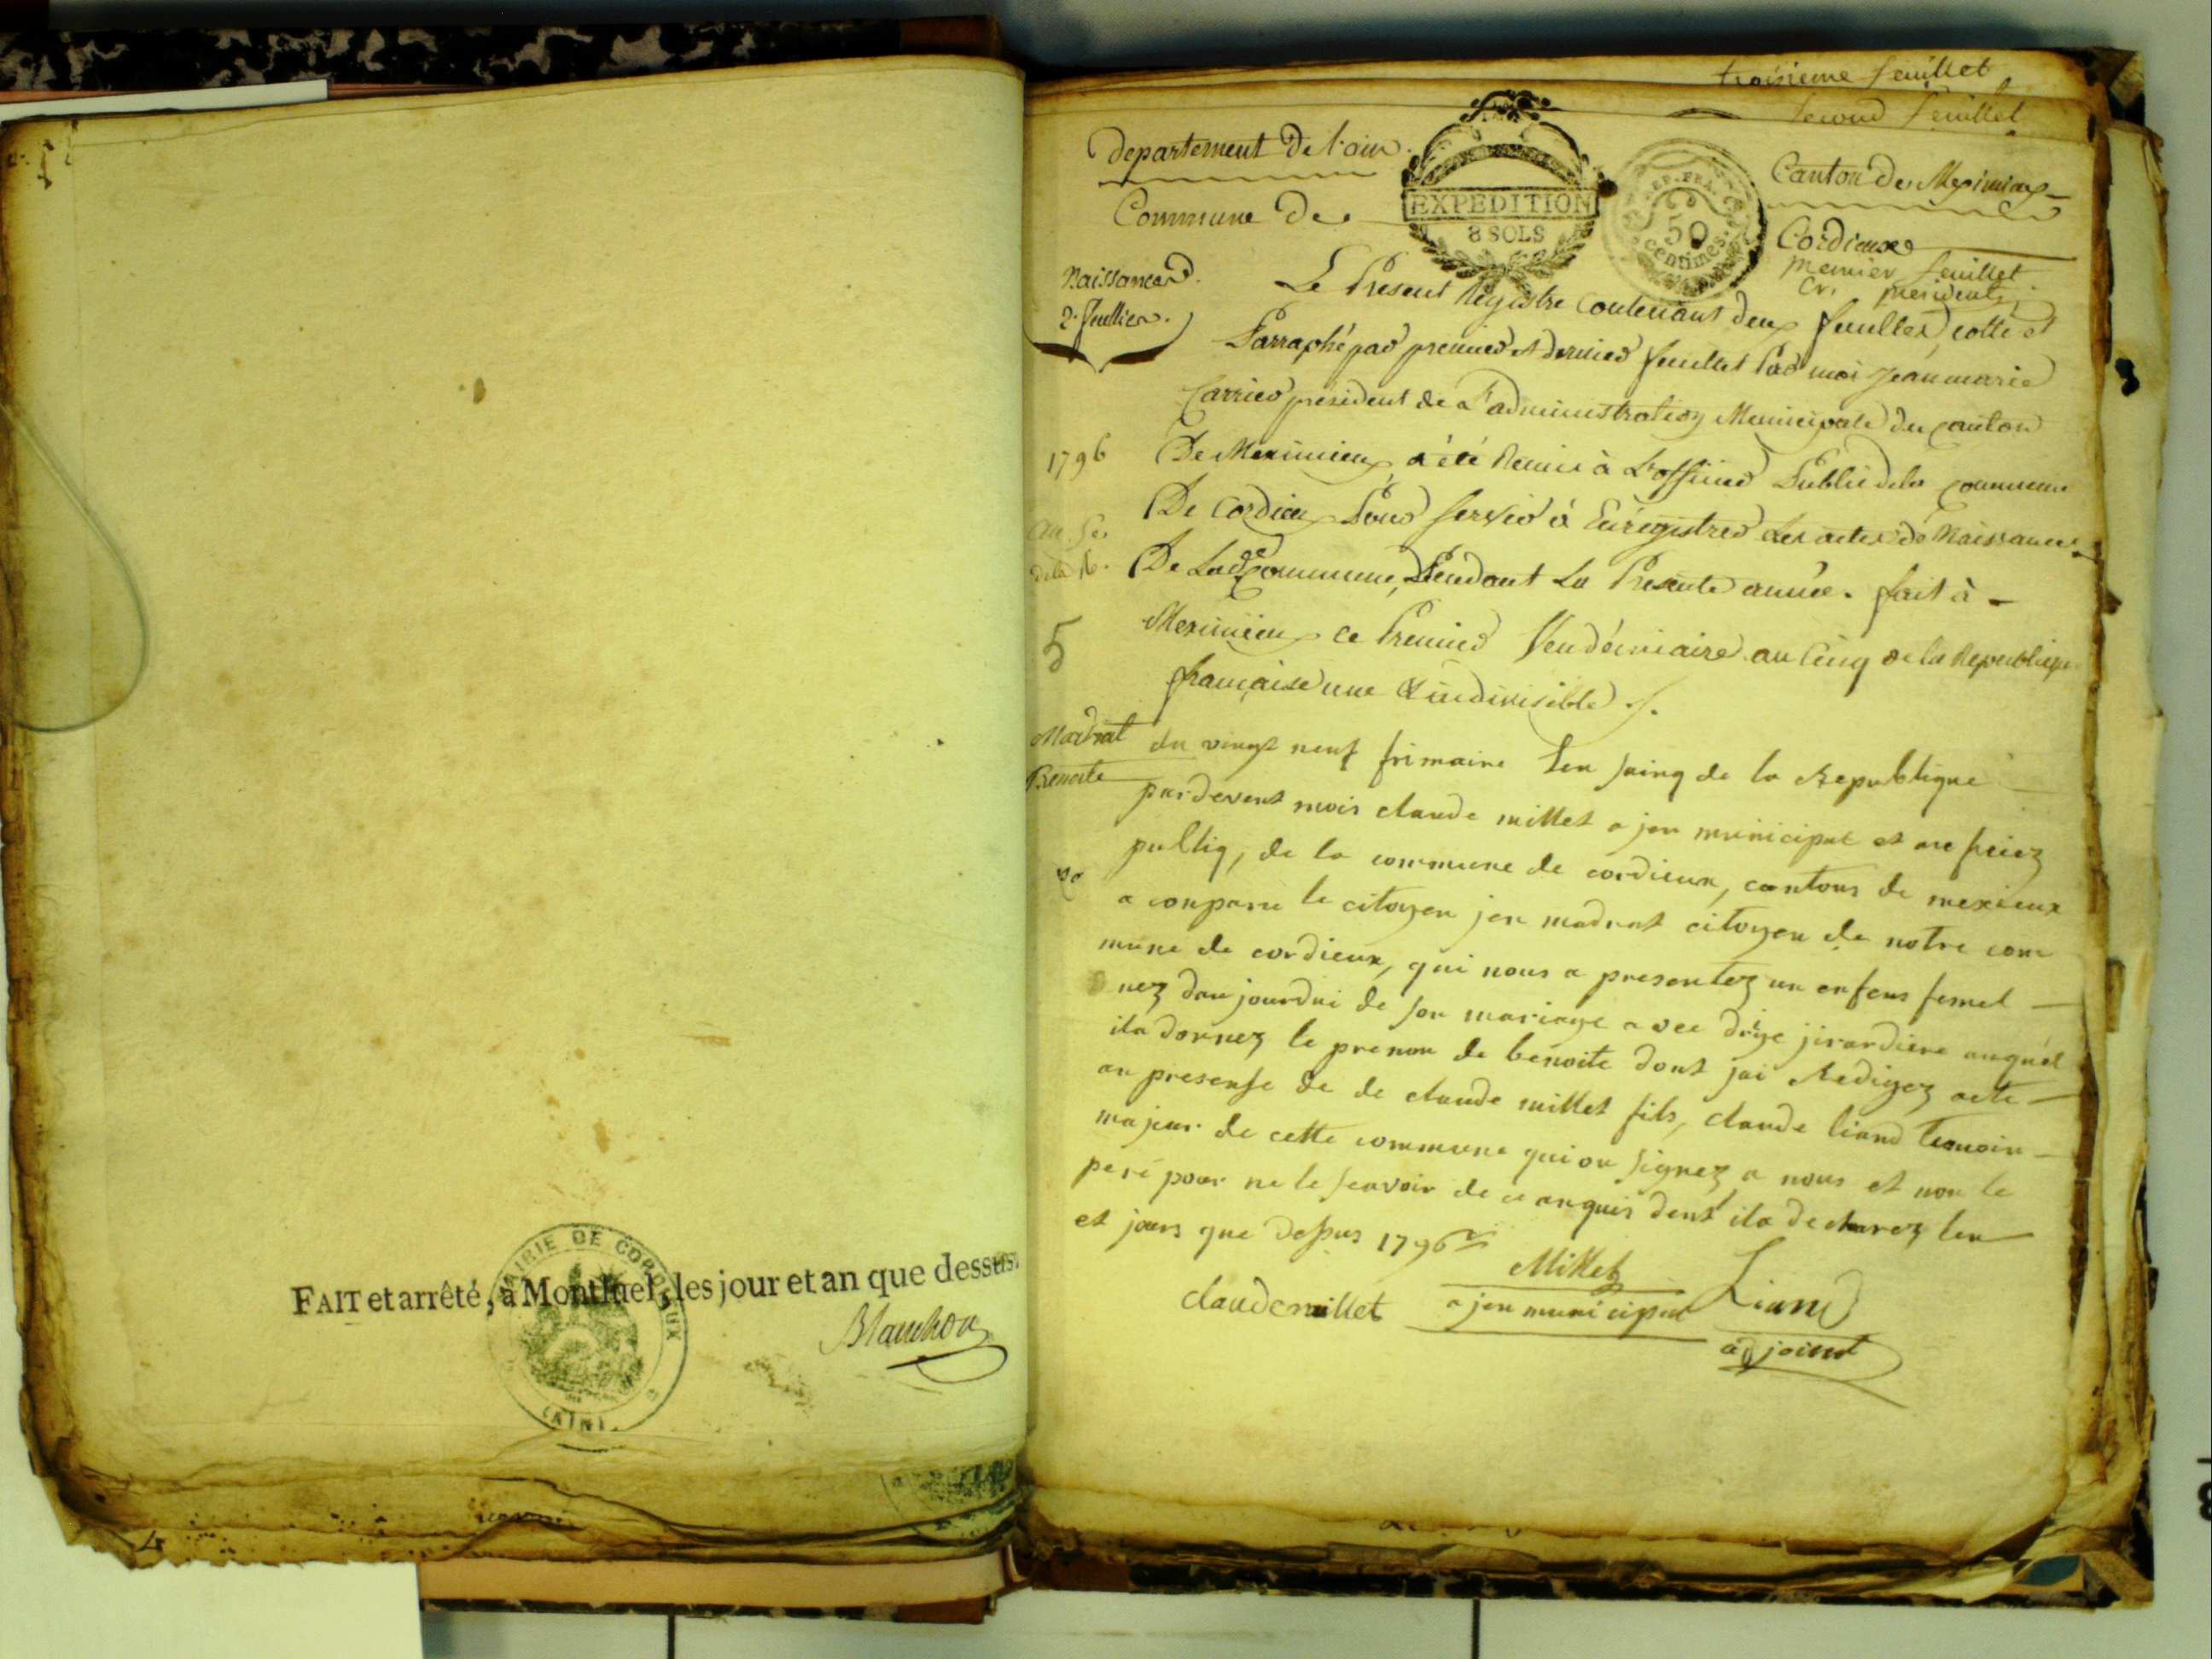 FAIT et arrêté, à Montluel, les jour et an que dessus.
Blanchon
MAIRIE DE CORDIEUX
(AIN)
troisieme feuillet
second feuillet
departement De l'ain.
Canton de Meximieux
Commune De
Cordieux
EXPEDITION
8 SOLS
REP. FRA.
50
centimes.
premier feuillet
Cr. president
Naissances.
2. feuilles.
Le Present Registre contenant deux feuilles, cotté et
Parraphé par premier et dernier feuillet Par moi Jean marie
Carrier president de L'administration Municipale du canton
1796
De Meximieux, a été Remis à L'officier Public de la commune
De Cordieux Pour servir à Enregistrer Les actes de Naissance
De Lade Commune, Pendant La Presente année. fait à
5
Meximieux ce Premier Vendémiaire an Cinq de la Republique
française une & indivisible
Madrat
Benoite
du vingt neuf frimaire len saing de la Republique
pardevent mois claude millet a jen municipal et au
publiq, de la commune de cordieux, cantons de mexieux
a conparu le citoyen jen madrat citoyen de notre com
mune de cordieux, qui nous a presentez un enfens femel
nez daujourdui de son mariage avec jirardiere auquel
ila donnez le prenom de benoite dont jai Redigez acte
an presense de de claude millet fils, claude liand temoin
majeur de cette commune qui on signez a nous et non le
peré pour ne le scavoir de ce anquis dent ila declarez len
et jours que dessus 1796
Millet
claude millet
a jen municipal
Liand
adjoint